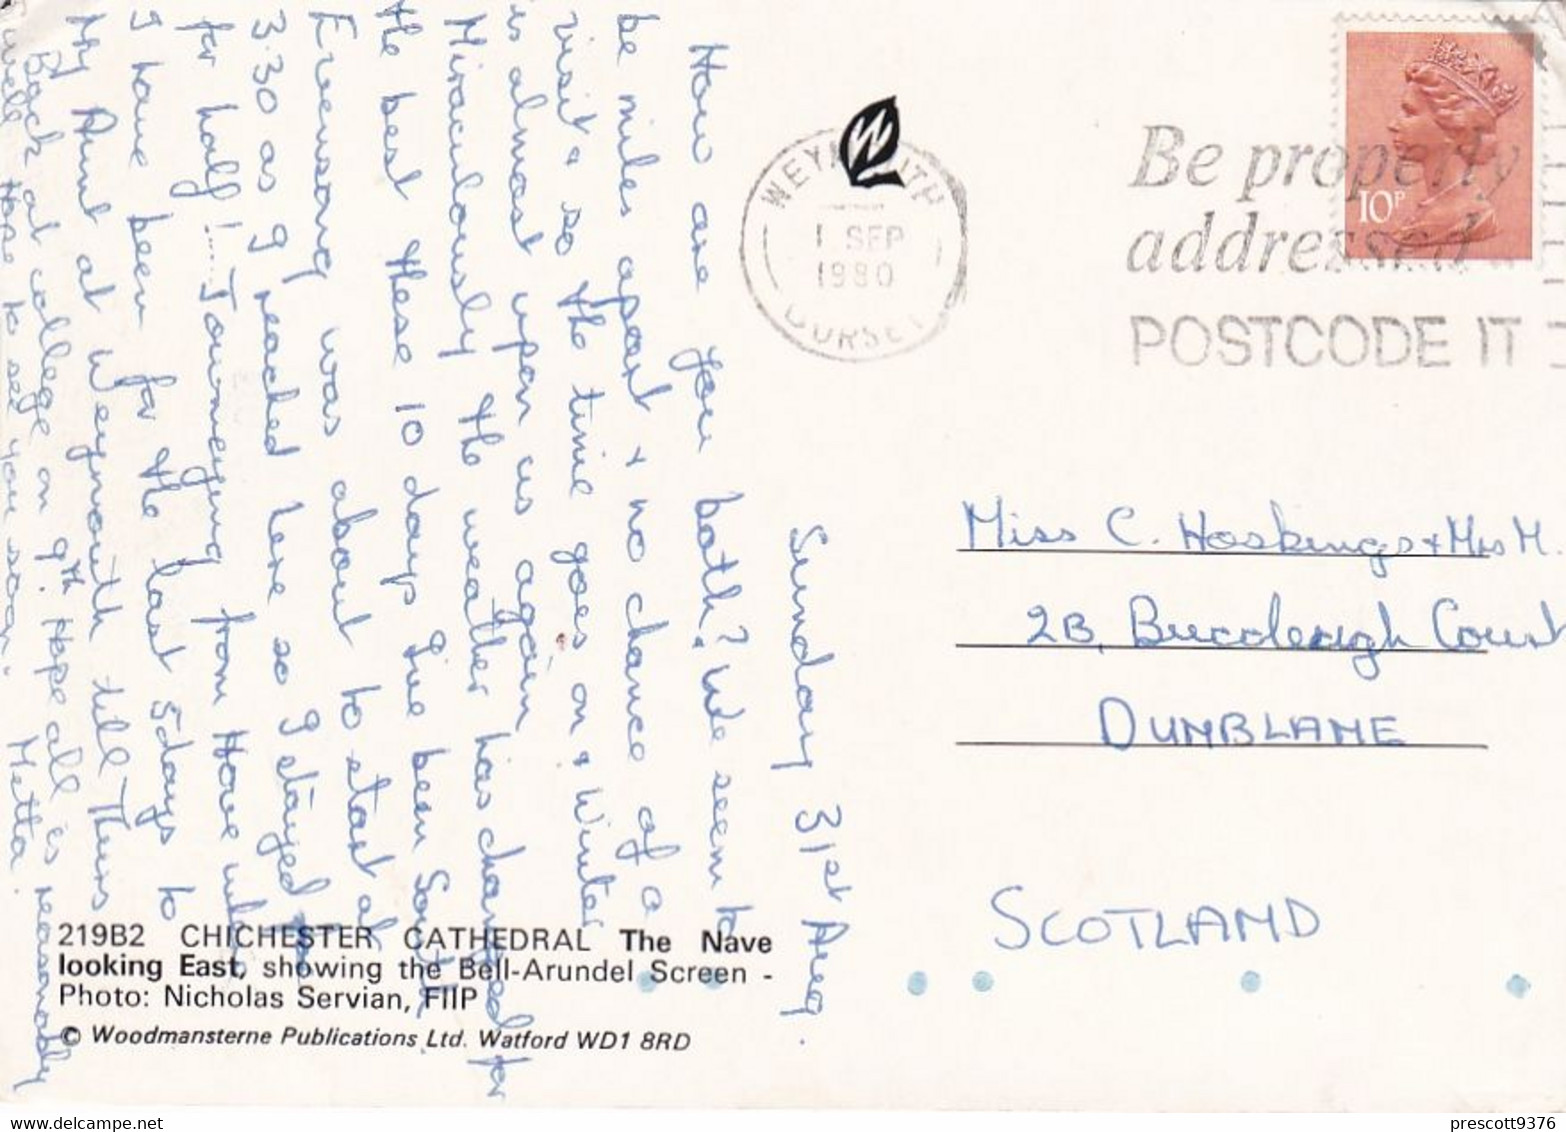 Sunday 31st Aug.
How are you both? We seem to
be miles apart & no chance of a
visit & so the time goes on & Winter
is almost upon us again
Miraculously the weather has changed for
the best these 10 days I've been South.
Evensong was about to start at
3.30 as I reached here so I stayed
for half!..... Journeying from Hove where
I have been for the last 5 days to
My Aunt at Weymouth till Thurs
Back at college on 9th. Hope all is reasonably
well. Hope to see you soon.
Metta.
219B2 CHICHESTER CATHEDRAL The Nave
looking East, showing the Bell-Arundel Screen -
Photo: Nicholas Servian, FIIP
© Woodmansterne Publications Ltd. Watford WD1 8RD
W
WEYMOUTH
1 SEP
1980
DORSET
Be properly
addressed
POSTCODE IT
10P
Miss C. Hoskings & Mrs M.
2B, Buccleugh Court
DUNBLANE
SCOTLAND
prescott9376